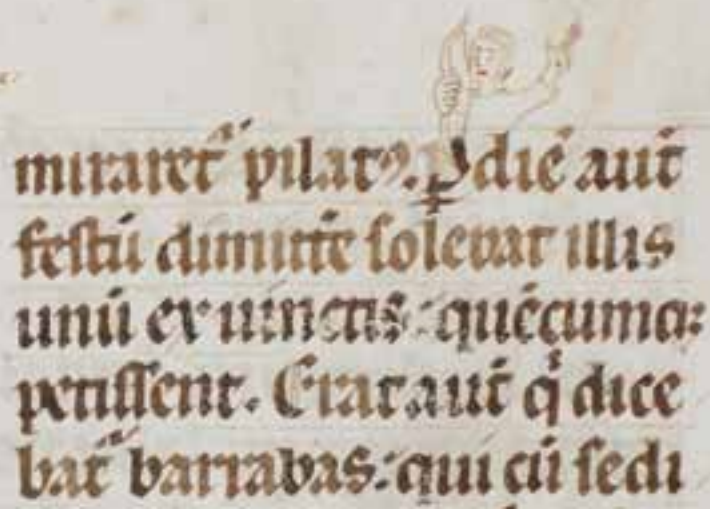 miraret᷑ pilatꝰ. P die aut̄
festū dimitt̄e solebat illis
unū ex uinctis: quēcumqꝫ
petissent. Erat aut̄ q̇ dice
bat᷑ barrabas: qui cū sedi